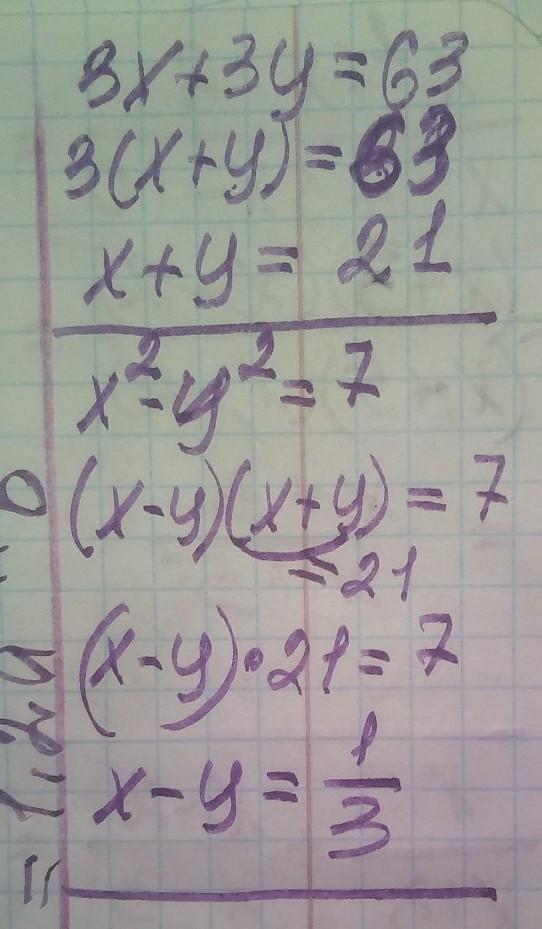 3x+3y=63
3(x+y)=63
x+y= 21
x²-y²=7
(x-y)(x+y)=7
=21
(x-y)•21=7
x-y=1/3